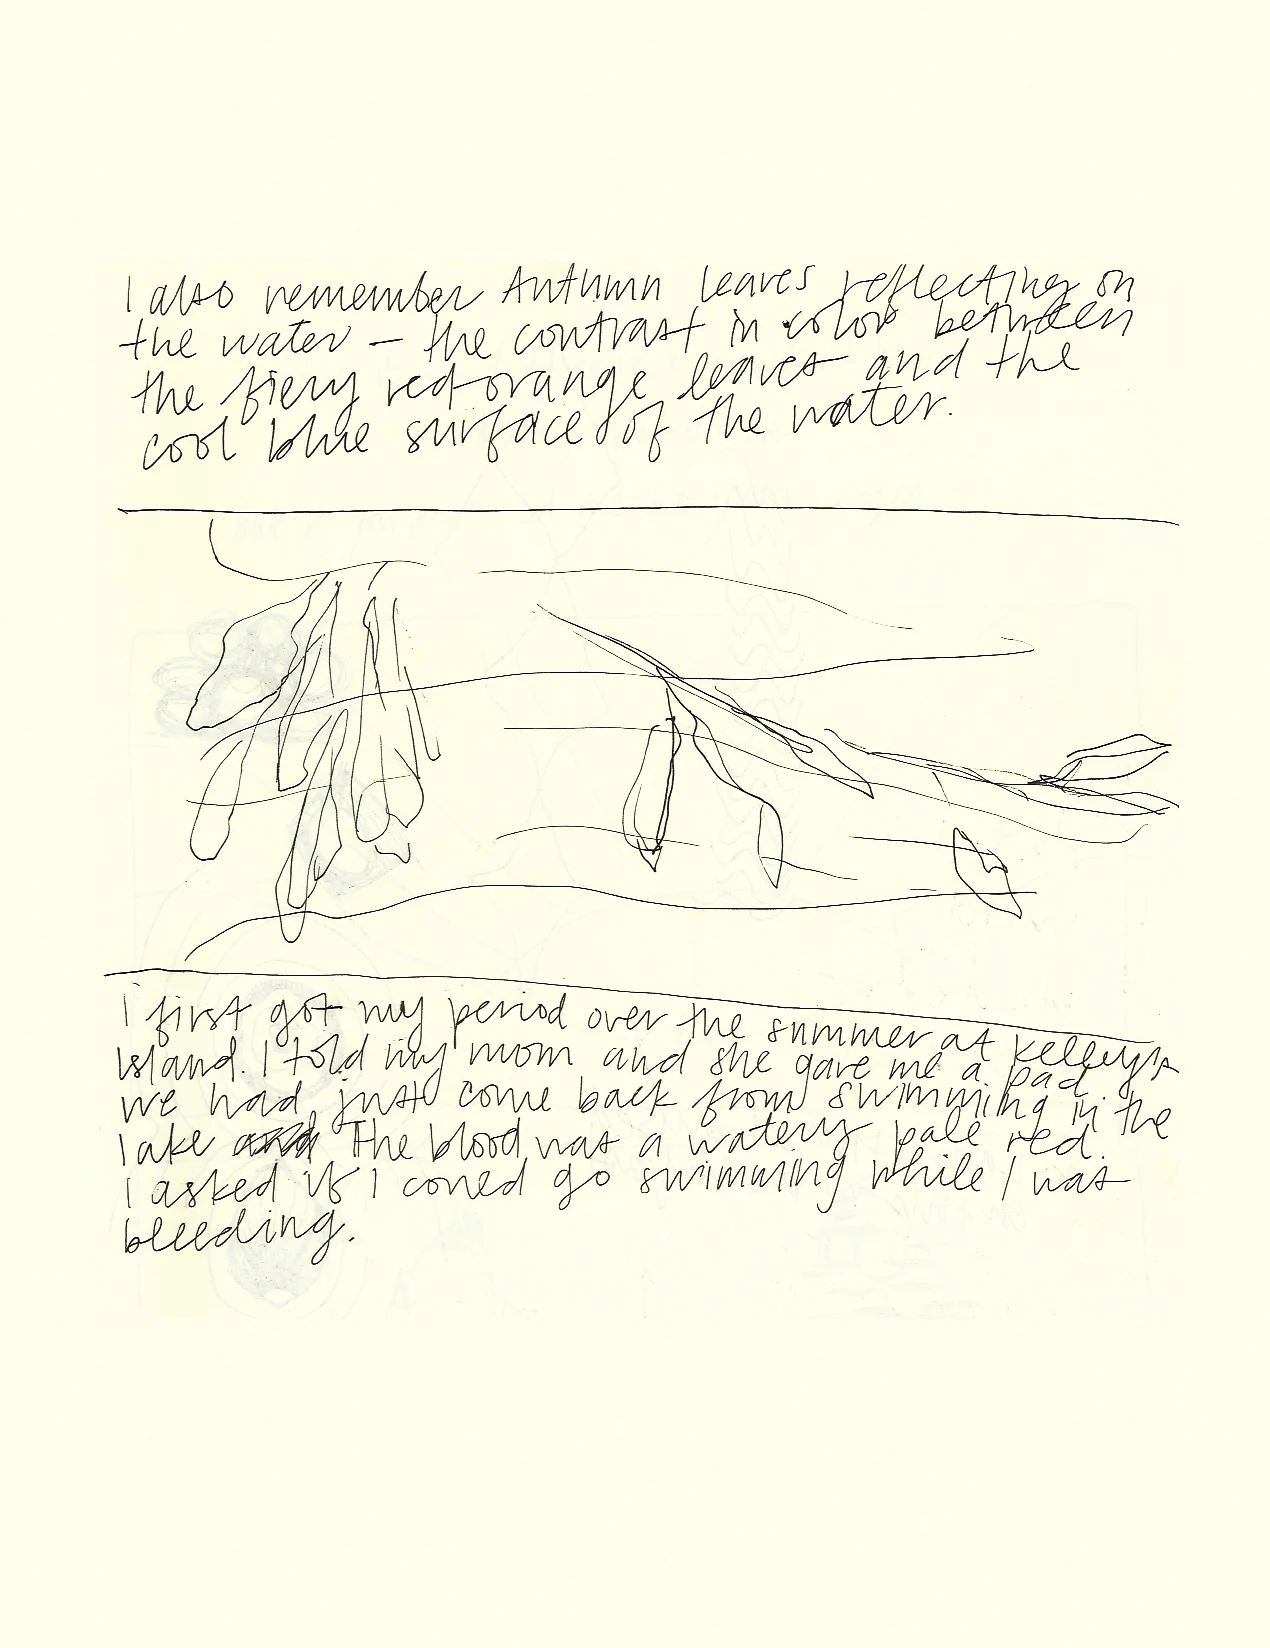 I also remember Autumn leaves reflecting on
the water – the contrast in color between
the fiery red-orange leaves and the
cool blue surface of the water.
I first got my period over the summer at Kelleys
Island. I told my mom and she gave me a pad
we had just come back from swimming in the
lake and The blood was a watery pale red.
I asked if I could go swimming while I was
bleeding.